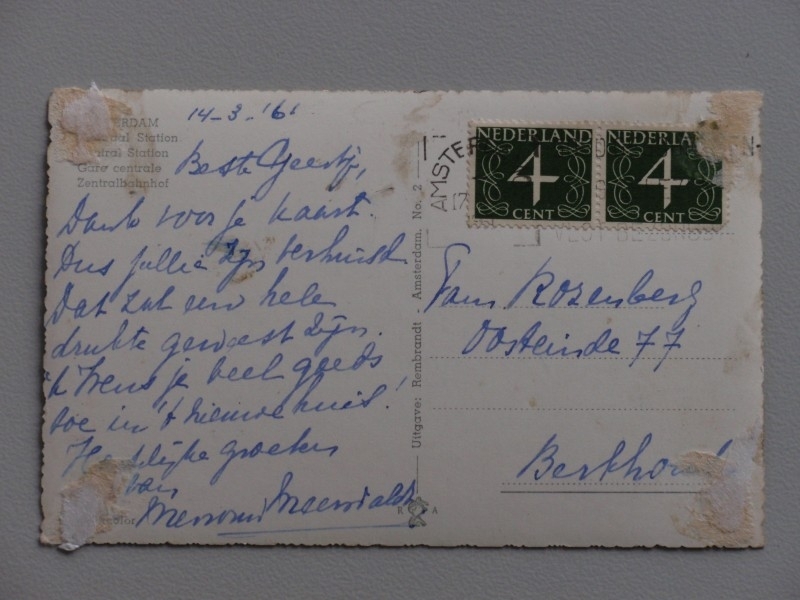 14-3-'61
AMSTERDAM
Station
Central Station
Gare centrale
Zentralbahnhof
Beste Geertje,
Dank voor je kaart.
Dus jullie zijn verhuisd.
Dat zal een hele
drukte geweest zijn.
'k Wens je veel goeds
toe in 't nieuwe huis!
Hartelijke groeten
van
Uitgave: Rembrandt - Amsterdam. No. 2
R A
NEDERLAND
4
CENT
NEDERLAND
4
CENT
AMSTER
17
Fam Rozenberg
Oosteinde 77